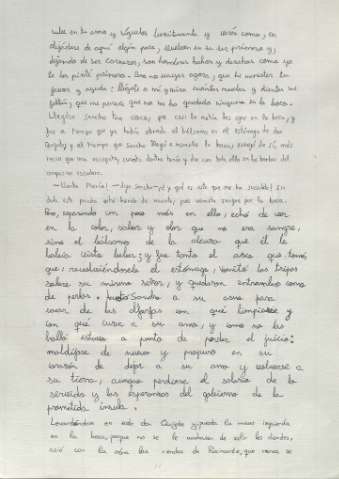 sube en tu asno y síguelos bonitamente y verás como, en
alejándose de aquí algún poco, se vuelven en su ser primero y,
dejando de ser carneros, son hombres hechos y derechos como yo
te los pinté primero. Pero no vayas agora, que he menester tu
favor y ayuda: llégate a mí y mira cuántas muelas y dientes me
faltan, que me parece que no me ha quedado ninguno en la boca.
Llegóse Sancho tan cerca, que casi le metía los ojos en la boca, y
fue a tiempo que ya había obrado el bálsamo en el estómago de don
Quijote; y al tiempo que Sancho llegó a mirarle la boca, arrojó de sí, más
recio que una escopeta, cuanto dentro tenía y dio con todo ello en las barbas del
compasivo escudero.
—¡Santa María! —dijo Sancho—, ¿y qué es esto que me ha sucedido? Sin
duda este pecador está herido de muerte, pues vomita sangre por la boca.
Pero, reparando un poco más en ello, echó de ver
en la color, sabor y olor que no era sangre,
sino el bálsamo de la alcuza que él le
había visto beber; y fue tanto el asco que tomó
que, revolviéndosele el estómago, vomitó las tripas
sobre su mismo señor, y quedaron entrambos como
de perlas. Sancho a su asno para
sacar de las alforjas con qué limpiarse y
con qué curar a su amo, y como no las
halló estuvo a punto de perder el juicio:
maldíjose de nuevo y propuso en su
corazón de dejar a su amo y volverse a
su tierra, aunque perdiese el salario de lo
servido y las esperanzas del gobierno de la
prometida ínsula.
Levantóse en esto don Quijote y, puesta la mano izquierda
en la boca, porque no se le acabasen de salir los dientes,
asió con la otra las riendas de Rocinante, que nunca se